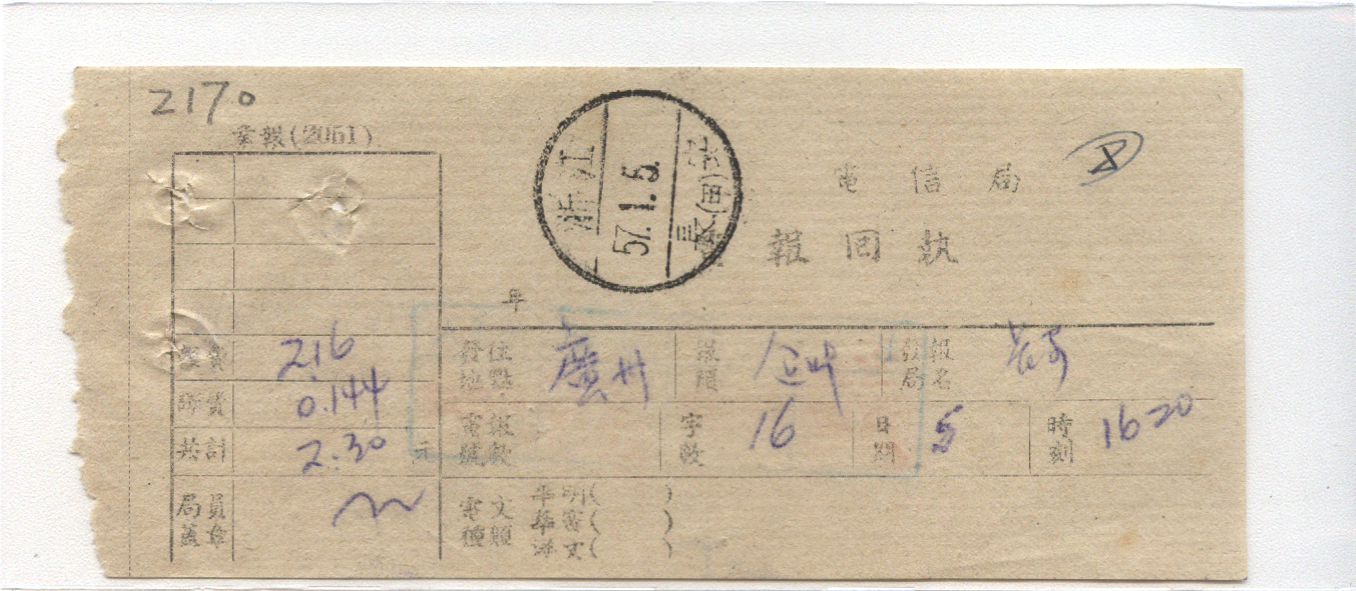 2170
業報(2051)
浙江
57.1.5.
長
電信局
報回執
年
費 2.16
0.144
共計 2.30 元
局員
蓋章
發往
地點
廣州
報
類
發報
局名
電報
號數
字數 16
日期 5
時刻 1620
電文
種類
華明( )
華密( )
洋文( )